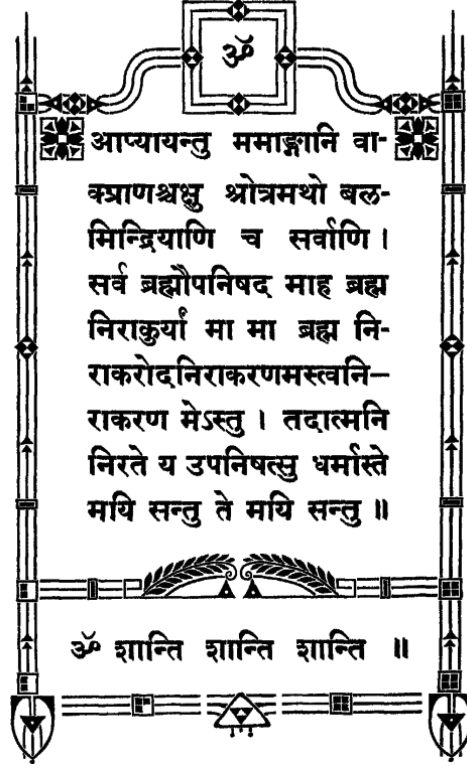 ॐ
आप्यायन्तु ममाङ्गानि वा-
क्प्राणश्चक्षु श्रोत्रमथो बल-
मिन्द्रियाणि च सर्वाणि ।
सर्व ब्रह्मौपनिषद माह ब्रह्म
निराकुर्यां मा मा ब्रह्म नि-
राकरोदनिराकरणमस्त्वनि-
राकरण मेऽस्तु । तदात्मनि
निरते य उपनिषत्सु धर्मास्ते
मयि सन्तु ते मयि सन्तु ॥
ॐ शान्ति शान्ति शान्ति ॥